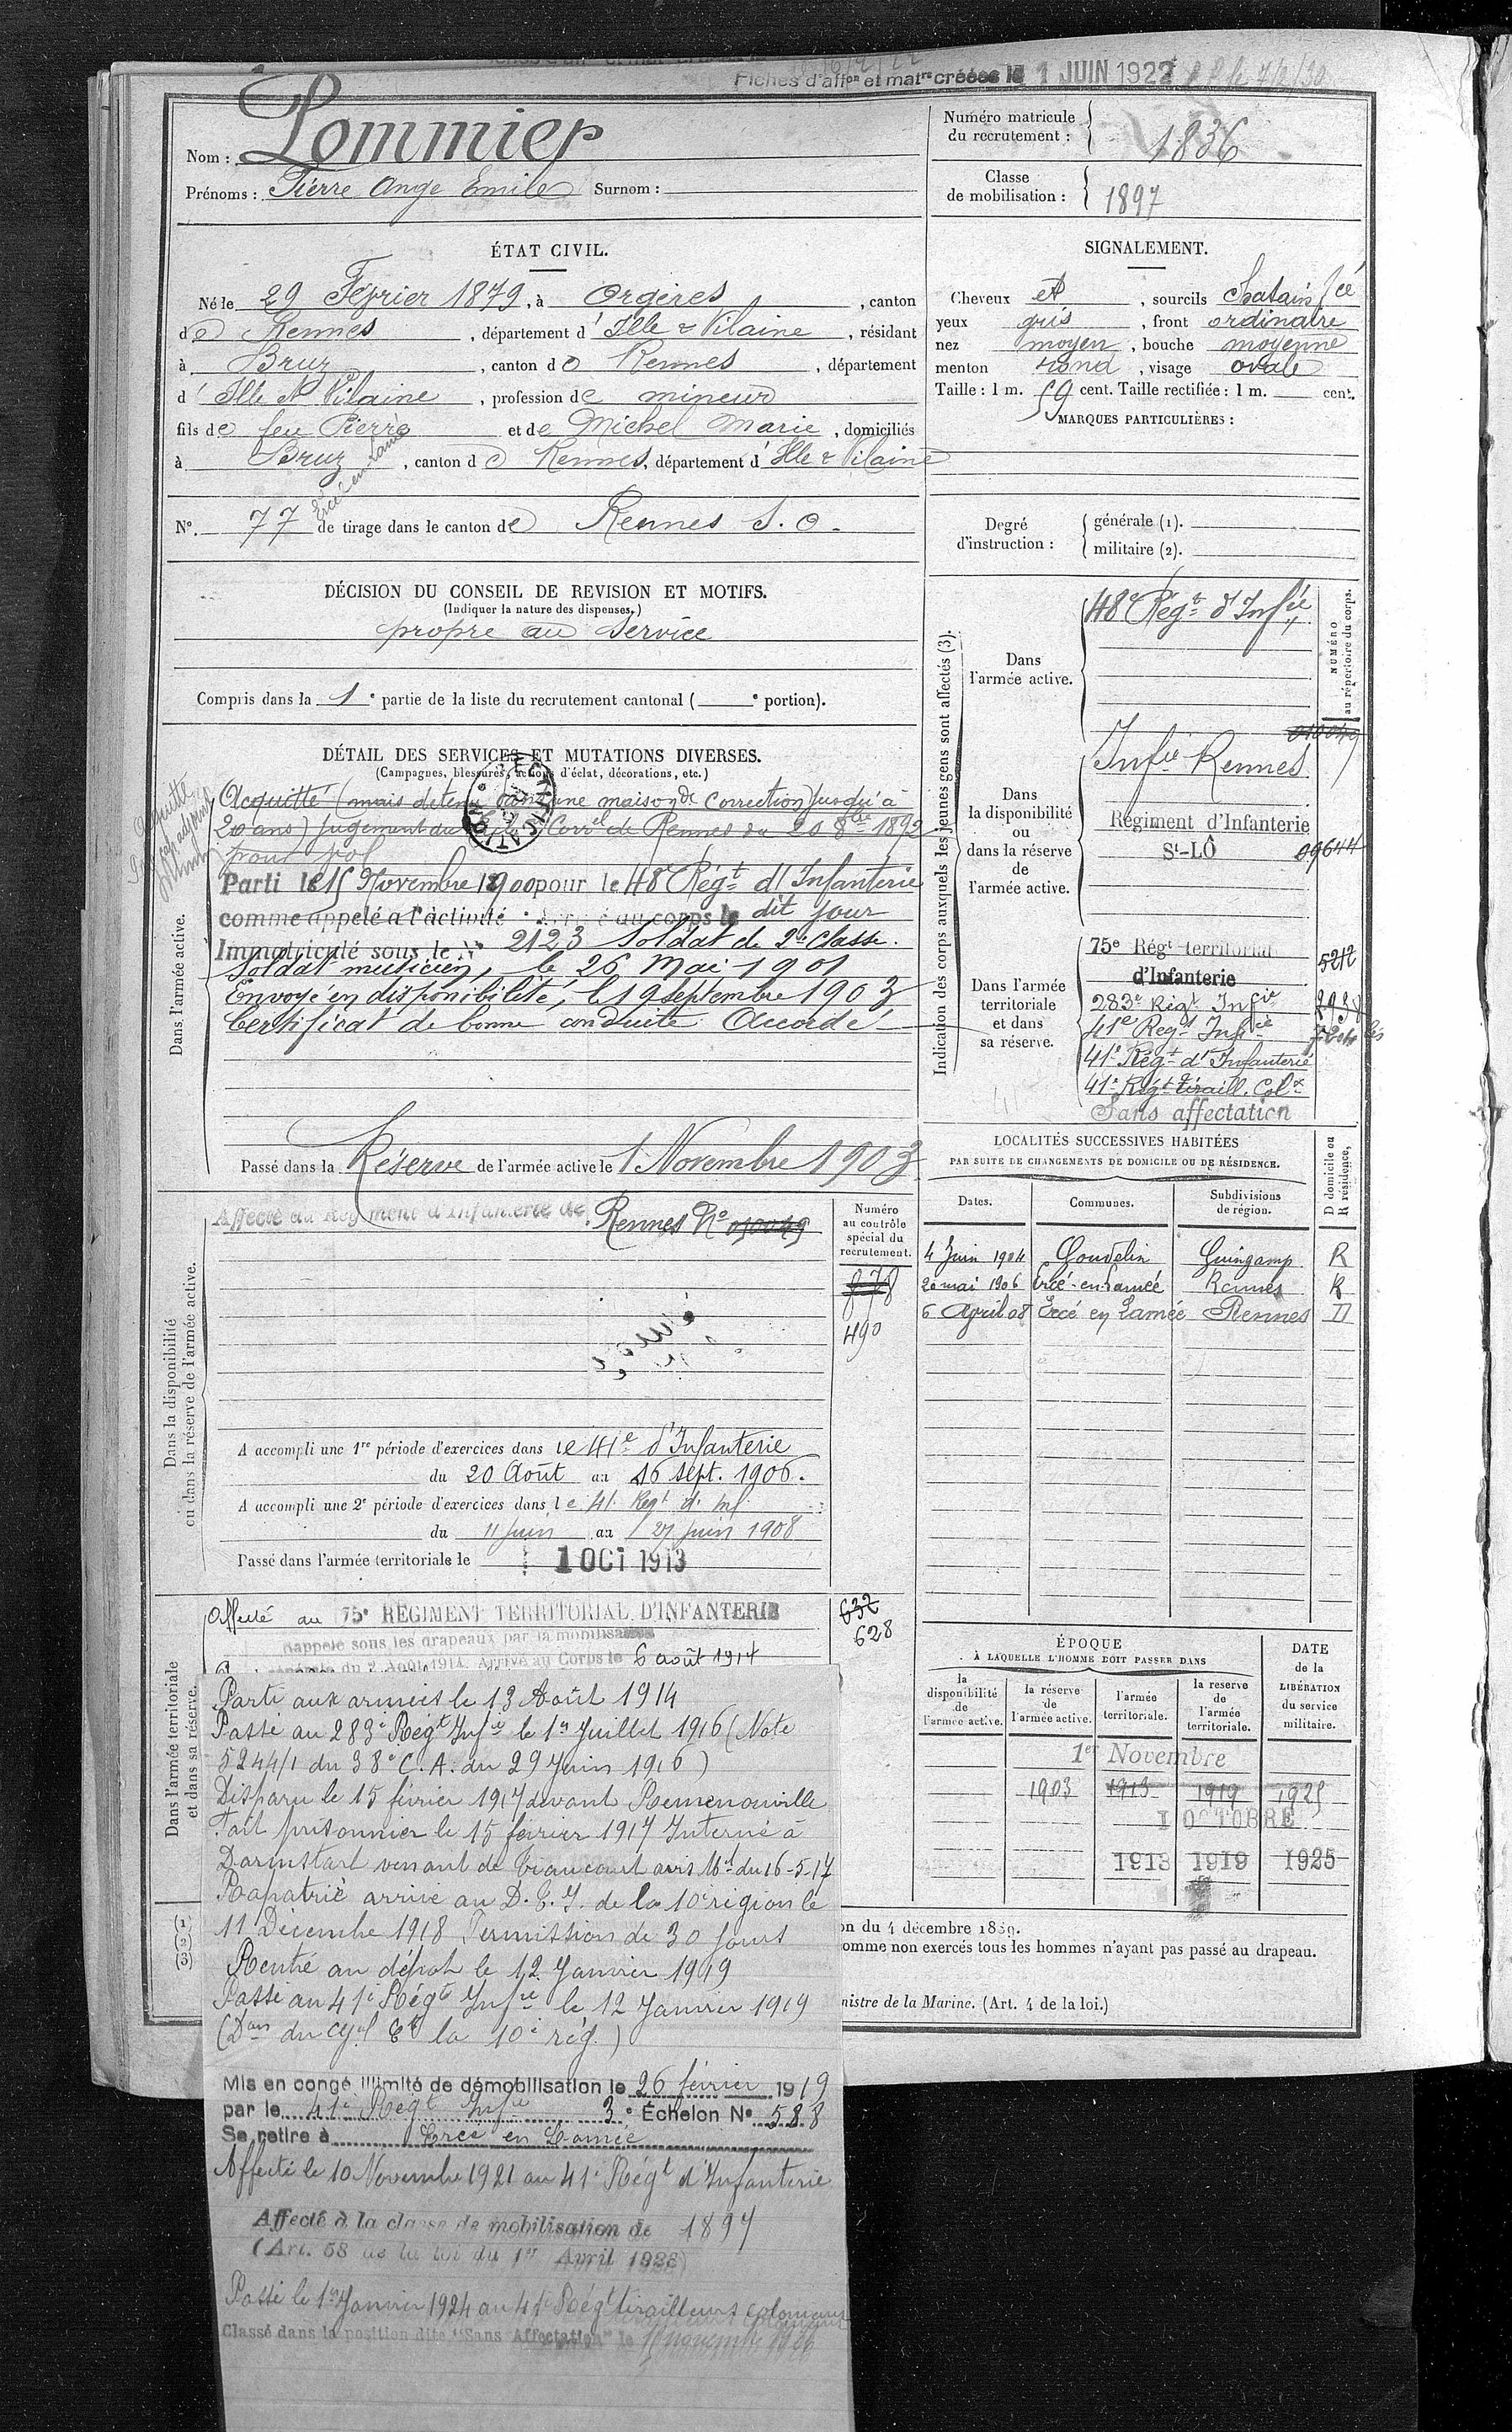 Fiches d'affon et matre créées le 1 JUIN 1922
Nom : Pommier
Prénoms : Pierre Ange Emile Surnom :
Numéro matricule du recrutement : 1836
Classe de mobilisation : 1897
ÉTAT CIVIL.
Né le 29 Février 1879, à Orgères, canton
de Rennes, département d'Ille & Vilaine, résidant
à Bruz, canton de Rennes, département
d'Ille et Vilaine, profession de mineur
fils de feu Pierre et de Michel Marie, domiciliés
à Bruz, canton de Rennes, département d'Ille & Vilaine
Ercé en Lamée
N° 77 de tirage dans le canton de Rennes S.O.
SIGNALEMENT.
Cheveux et, sourcils Chatain fcé
yeux gris, front ordinaire
nez moyen, bouche moyenne
menton rond, visage ovale
Taille : 1 m. 59 cent. Taille rectifiée : 1 m. cent.
MARQUES PARTICULIÈRES :
Degré d'instruction : générale (1). militaire (2).
DÉCISION DU CONSEIL DE REVISION ET MOTIFS.
(Indiquer la nature des dispenses.)
propre au service
Compris dans la 1e partie de la liste du recrutement cantonal ( e portion).
DÉTAIL DES SERVICES ET MUTATIONS DIVERSES.
(Campagnes, blessures, actions d'éclat, décorations, etc.)
Dans l'armée active.
Acquitté (mais detenu dans une maison de correction jusqu'à
20 ans) jugement du Correl de Rennes du 20 8bre 1892
pour vol
Parti le 15 Novembre 1900 pour le 48e Régt d'Infanterie
comme appelé a l'activité. Arrivé au corps le dit jour
Immatriculé sous le N° 2123 Soldat de 2e classe.
Soldat musicien, le 26 Mai 1901
Envoyé en disponibilité, le 19 Septembre 1903
Certificat de bonne conduite Accordé
Passé dans la Réserve de l'armée active le 1 Novembre 1903
Indication des corps auxquels les jeunes gens sont affectés (3).
NUMÉRO au répertoire du corps.
Dans l'armée active.
48e Régt d'Infie
Dans la disponibilité ou dans la réserve de l'armée active.
010049
Infie Rennes
Régiment d'Infanterie
St-LÔ 09644
Dans l'armée territoriale et dans sa réserve.
75e Régt territorial 5212
d'Infanterie
283e Régt Infie
41e Régt Infie
41e Régt d'Infanterie
41e Régt Tiraill. Colx
Sans affectation
LOCALITÉS SUCCESSIVES HABITÉES
PAR SUITE DE CHANGEMENTS DE DOMICILE OU DE RÉSIDENCE.
D domicile ou R résidence.
Dates. Communes. Subdivisions de région.
4 Juin 1904 Goudelin Guingamp R
20 mai 1906 Ercé-en-Lamée Rennes R
6 April 08 Ercé en Lamée Rennes D
Dans la disponibilité ou dans la réserve de l'armée active.
Affecté au Régiment d'Infanterie de Rennes N° 010049
Numéro au contrôle spécial du recrutement.
490
A accompli une 1re période d'exercices dans le 41e d'Infanterie
du 20 Août au 16 sept. 1906.
A accompli une 2e période d'exercices dans le 41 Regt d'inf
du 11 juin au 27 juin 1908
Passé dans l'armée territoriale le 1 OCT 1913
Dans l'armée territoriale et dans sa réserve.
Affecté au 75e RÉGIMENT TERRITORIAL D'INFANTERIE
632
628
Rappelé sous les drapeaux par la mobilisation
générale du 2 Août 1914. Arrivé au Corps le 6 août 1914
Parti aux armées le 13 Août 1914
Passé au 283e Régt Infie le 1er Juillet 1916 (Note
5244/1 du 38e C.A. du 29 Juin 1916)
Disparu le 15 février 1917 devant Remenouville
Fait prisonnier le 15 février 1917 Interné à
Darmstart venant de Giraucourt avis Mel du 16-5-17
Rapatrié arrivé au D.E.I. de la 10e région le
11 Décembre 1918 Permission de 30 jours
Rentré au dépôt le 12 Janvier 1919
Passé au 41e Régt Infie le 12 Janvier 1919
(Don du Gal Ct la 10e rég.)
Mis en congé illimité de démobilisation le 26 février 1919
par le 41e Régt Infie 3e Échelon N° 588
Se retire à Ercé en Lamée
Affecté le 10 Novembre 1921 au 41e Régt d'Infanterie
Affecté à la classe de mobilisation de 1897
(Art. 58 de la loi du 1er Avril 1923)
Passé le 1er Janvier 1924 au 41e Régt tirailleurs coloniaux
Classé dans la position dite "Sans Affectation" le 15 novembre 1926
ÉPOQUE
À LAQUELLE L'HOMME DOIT PASSER DANS
la disponibilité de l'armée active. la réserve de l'armée active. l'armée territoriale. la réserve de l'armée territoriale.
DATE de la LIBÉRATION du service militaire.
1er Novembre
1903 1913 1919 1925
1 OCTOBRE
1913 1919 1925
(1) (2) (3)
on du 4 décembre 1889.
omme non exercés tous les hommes n'ayant pas passé au drapeau.
nistre de la Marine. (Art. 4 de la loi.)